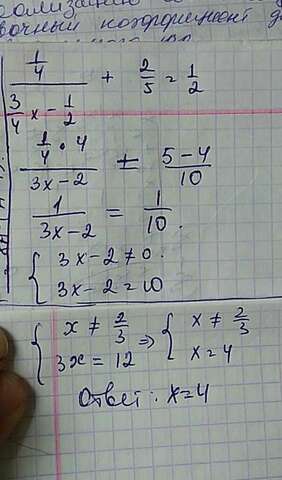 вочный коэффициент д
1/4 / (3/4 x - 1/2) + 2/5 = 1/2
1/4 · 4 / (3x - 2) = (5 - 4) / 10
1 / (3x - 2) = 1 / 10.
{ 3x - 2 ≠ 0.
{ 3x - 2 = 10
{ x ≠ 2/3 ⇒ { x ≠ 2/3
{ 3x = 12 { x = 4
Ответ: x = 4